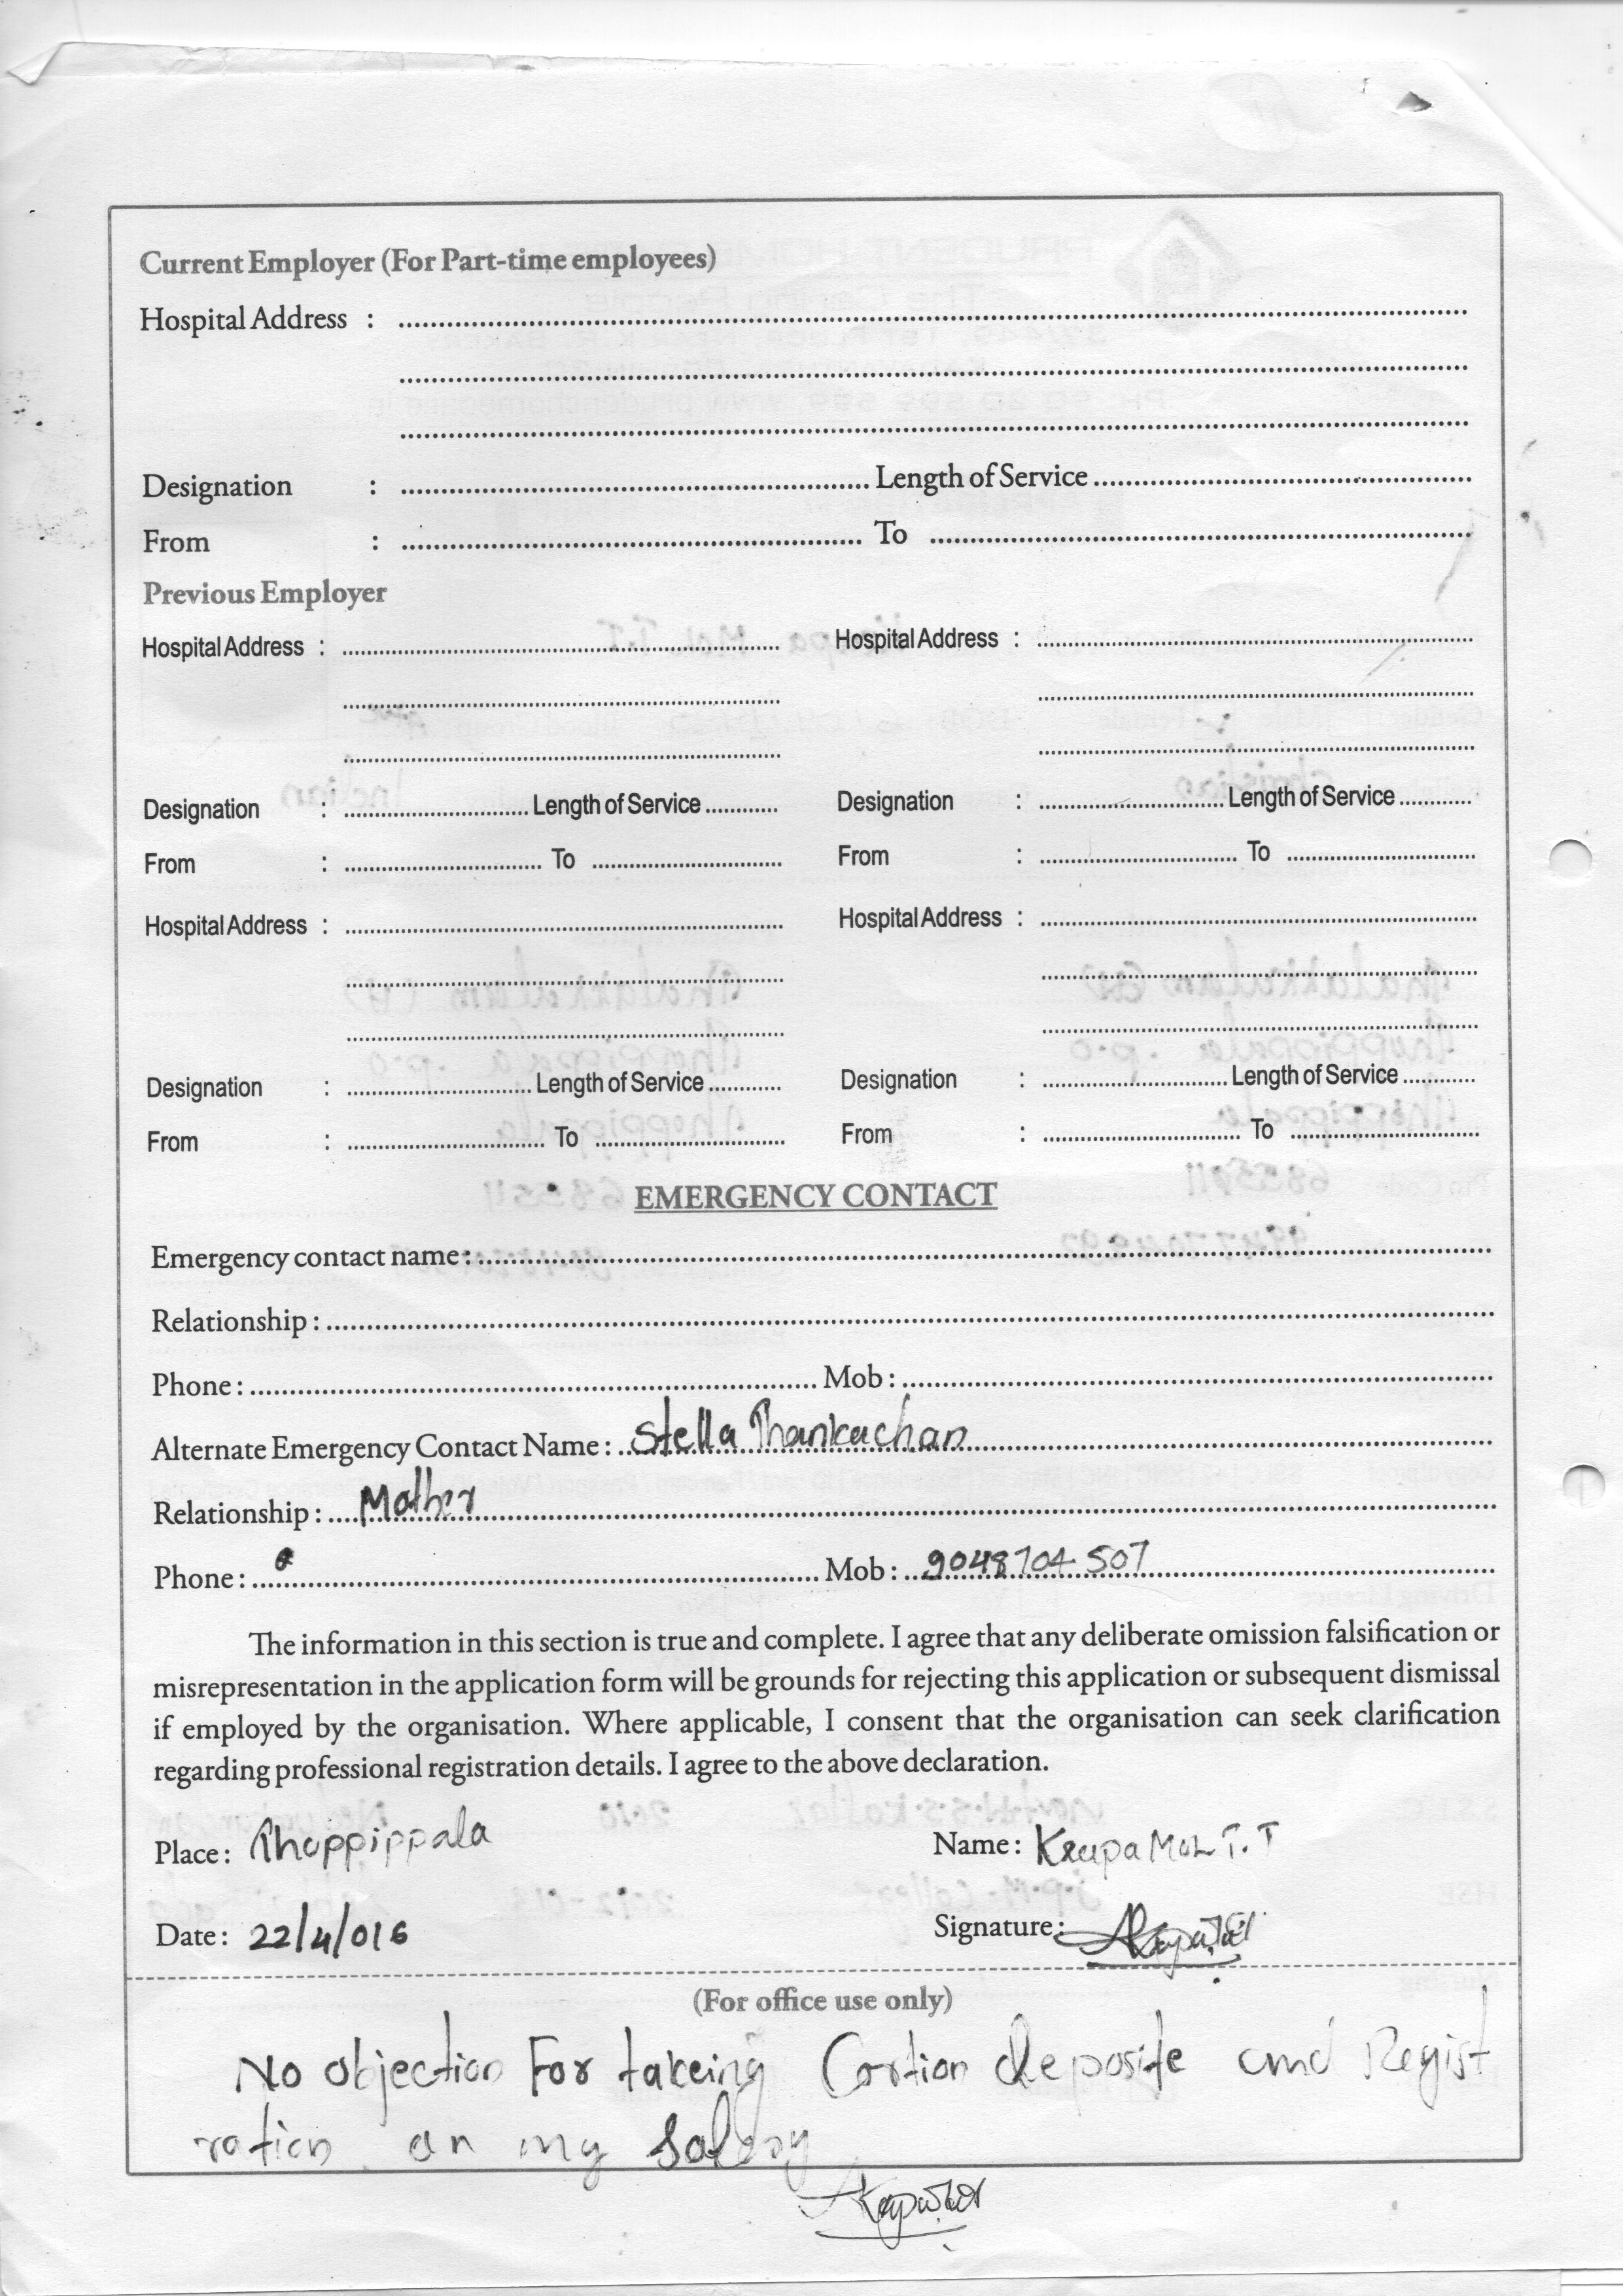 Current Employer (For Part-time employees)
Hospital Address :
Designation : Length of Service
From : To
Previous Employer
Hospital Address : Hospital Address :
Designation : Length of Service Designation : Length of Service
From : To From : To
Hospital Address : Hospital Address :
Designation : Length of Service Designation : Length of Service
From : To From : To
EMERGENCY CONTACT
Emergency contact name :
Relationship :
Phone : Mob :
Alternate Emergency Contact Name : Stella Thankachan
Relationship : Mother
Phone : Mob : 9048704507
The information in this section is true and complete. I agree that any deliberate omission falsification or
misrepresentation in the application form will be grounds for rejecting this application or subsequent dismissal
if employed by the organisation. Where applicable, I consent that the organisation can seek clarification
regarding professional registration details. I agree to the above declaration.
Place : Thoppippala Name : Krupa Mol T.T
Date : 22/4/016 Signature :
(For office use only)
No objection For takeing Cortion deposite and Regist
ration on my Salary